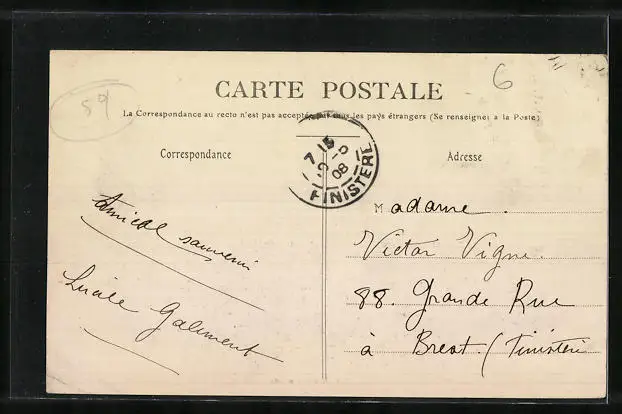 6
59
CARTE POSTALE
La Correspondance au recto n'est pas acceptée par tous les pays étrangers (Se renseigner à la Poste)
Correspondance
Adresse
7 15
9-9
08
FINISTERE
Amical souvenir
Lucie Galiment
Madame.
Victor Vigne.
88. Grande Rue
à Brest (Finistère